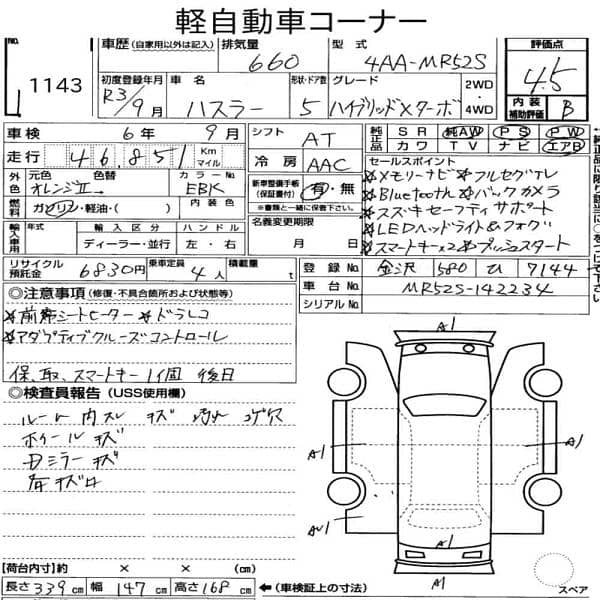 軽自動車コーナー
No. 1143
車歴 (自家用以外は記入) 排気量 660 型式 4AA-MR52S
評価点 4.5
内装補助評価 B
初度登録年月 R3/9月 車名 ハスラー 形状・ドア数 5 グレード ハイブリッドXターボ 2WD・4WD
車検 6年 9月 シフト AT
純正品 SR 純AW PS PW
カワ TV ナビ エアB
走行 46,851 Km マイル 冷房 AAC
セールスポイント
外色 元色 オレンジII 色替 カラーNo. EBK
新車整備手帳(保証書付) 有・無
※書類と一緒に保管下さい。
燃料 ガソリン・軽油・( ) 内装色
名義変更期限 月 日
輸入車用 年式 輸入区分 ディーラー・並行 ハンドル 左・右
☆メモリーナビ☆フルセグTV
☆Bluetooth☆バックカメラ
☆スズキセーフティサポート
☆LEDヘッドライト&フォグ
☆スマートキー×2☆プッシュスタート
純正品に限り該当に○をつけて下さい
リサイクル預託金 6830円 乗車定員 4人 積載量 t
登録No. 金沢 580 ひ 7144
車台No. MR52S-142234
シリアルNo.
◎注意事項 (修復・不具合箇所および状態等)
☆前席シートヒーター☆ドラレコ
☆アダプティブクルーズコントロール
保、取、スマートキー1個 後日
◎検査員報告 (USS使用欄)
ルーム内スレ キズ 汚れ コゲ穴
ホイールキズ
Dミラーキズ
A1
A1
A1
A1
A1
A1
スペア
【荷台内寸】約 × × (cm)
長さ 339 cm 幅 147 cm 高さ 168 cm ←(車検証上の寸法)